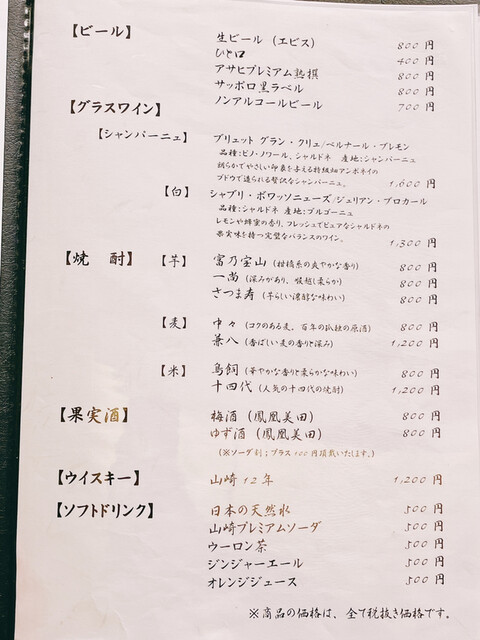 【ビール】
生ビール（エビス） 800 円
ひと口 400 円
アサヒプレミアム熟撰 800 円
サッポロ黒ラベル 800 円
ノンアルコールビール 700 円
【グラスワイン】
【シャンパーニュ】 ブリュット グラン・クリュ/ベルナール・ブレモン
品種:ピノ・ノワール、シャルドネ 産地:シャンパーニュ
朗らかでやさしい印象を与える特級畑アンボネイの
ブドウで造られる贅沢なシャンパーニュ。 1,600 円
【白】 シャブリ・ボワッソニューズ/ジュリアン・ブロカール
品種:シャルドネ 産地:ブルゴーニュ
レモンや蜂蜜の香り。フレッシュでピュアなシャルドネの
果実味を持つ完璧なバランスのワイン。 1,300 円
【焼 酎】 【芋】 富乃宝山（柑橘系の爽やかな香り） 800 円
一尚（深みがあり、喉越し柔らか） 800 円
さつま寿（芋らしい濃醇な味わい） 800 円
【麦】 中々（コクのある麦、百年の孤独の原酒） 800 円
兼八（香ばしい麦の香りと深み） 1,200 円
【米】 鳥飼（華やかな香りと柔らかな味わい） 800 円
十四代（人気の十四代の焼酎） 1,200 円
【果実酒】 梅酒（鳳凰美田） 800 円
ゆず酒（鳳凰美田） 800 円
（※ソーダ割；プラス100円頂戴いたします。）
【ウイスキー】 山崎12年 1,200 円
【ソフトドリンク】 日本の天然水 500 円
山崎プレミアムソーダ 500 円
ウーロン茶 500 円
ジンジャーエール 500 円
オレンジジュース 500 円
※商品の価格は、全て税抜き価格です。